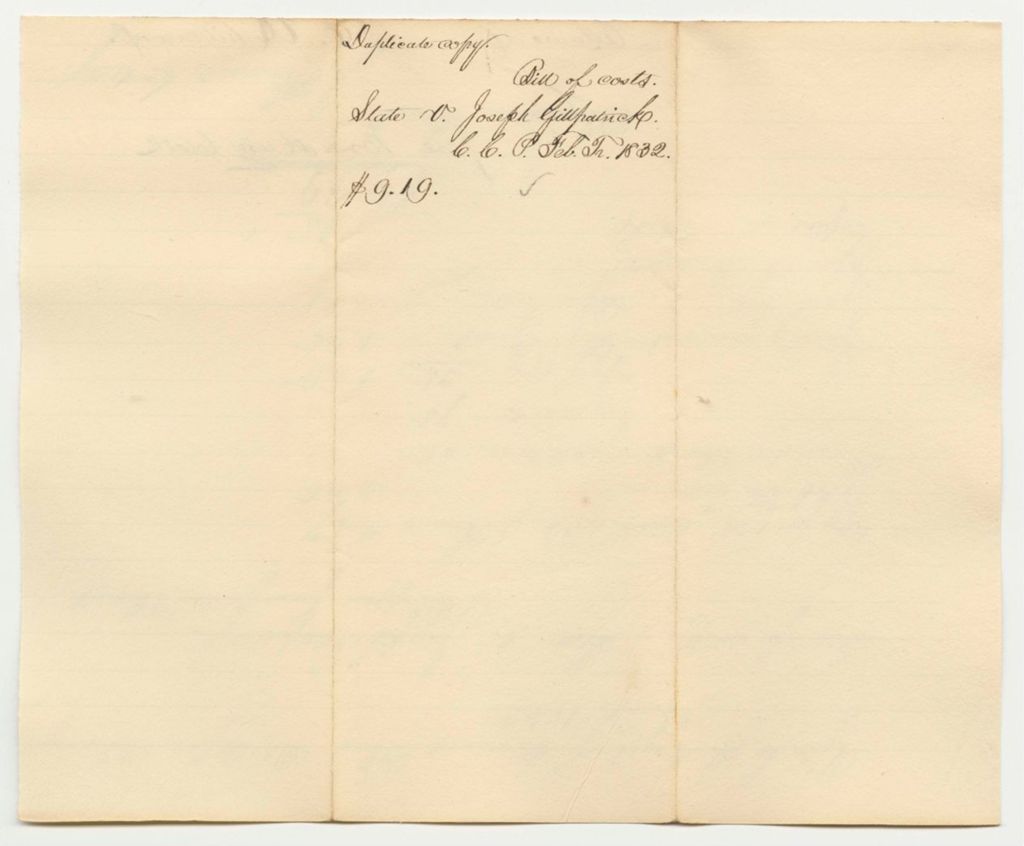 Duplicate copy.
Bill of costs.
State v. Joseph Gillpatrick.
C. C. P. Feb. Tr. 1832.
$9.19.